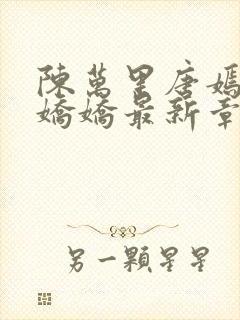 陳萬里唐嫣
嬌嬌最新章
另一顆星星